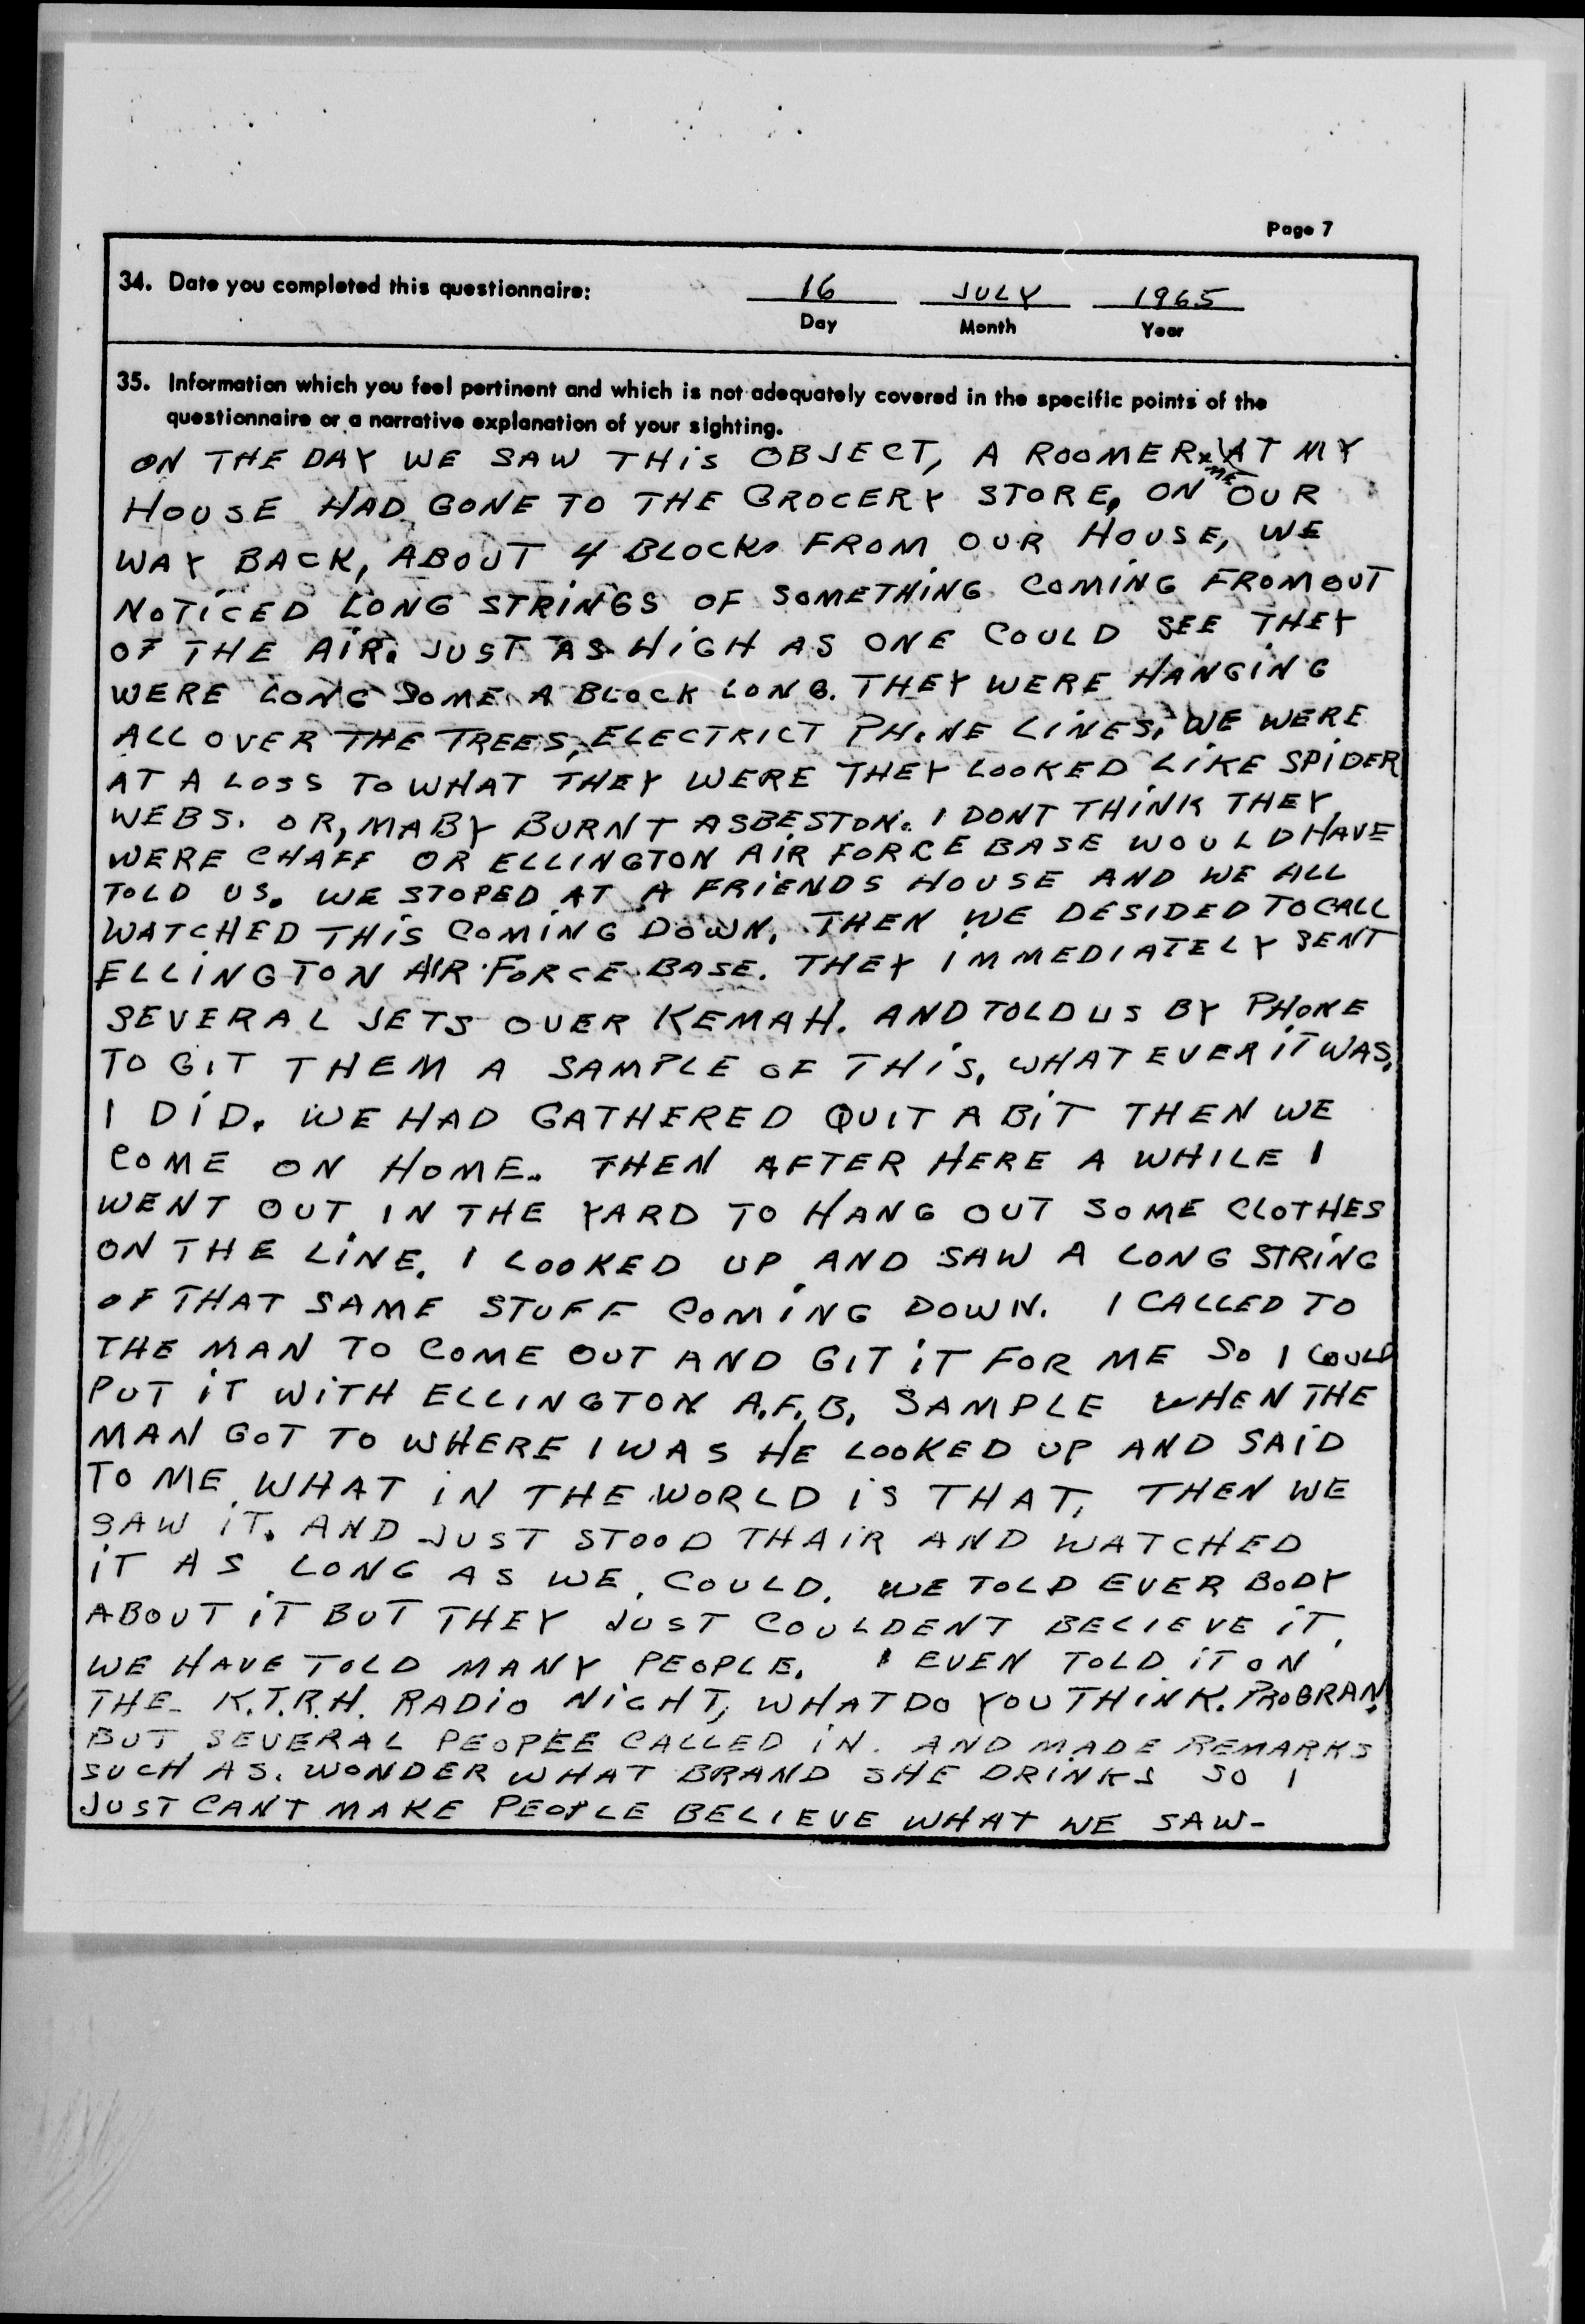 Page 7
34. Date you completed this questionnaire:
16 JULY 1965
Day Month Year
35. Information which you feel pertinent and which is not adequately covered in the specific points of the
questionnaire or a narrative explanation of your sighting.
ON THE DAY WE SAW THIS OBJECT, A ROOMER & ME AT MY
HOUSE HAD GONE TO THE GROCERY STORE, ON OUR
WAY BACK, ABOUT 4 BLOCKS FROM OUR HOUSE, WE
NOTICED LONG STRINGS OF SOMETHING COMING FROM OUT
OF THE AIR. JUST AS HIGH AS ONE COULD SEE THEY
WERE LONG SOME A BLOCK LONG. THEY WERE HANGING
ALL OVER THE TREES, ELECTRICT PHONE LINES, WE WERE
AT A LOSS TO WHAT THEY WERE THEY LOOKED LIKE SPIDER
WEBS. OR, MABY BURNT ASBESTON. I DONT THINK THEY
WERE CHAFF OR ELLINGTON AIR FORCE BASE WOULD HAVE
TOLD US. WE STOPED AT A FRIENDS HOUSE AND WE ALL
WATCHED THIS COMING DOWN. THEN WE DESIDED TO CALL
ELLINGTON AIR FORCE BASE. THEY IMMEDIATELY SENT
SEVERAL JETS OVER KEMAH. AND TOLD US BY PHONE
TO GIT THEM A SAMPLE OF THIS, WHAT EVER IT WAS.
I DID. WE HAD GATHERED QUIT A BIT THEN WE
COME ON HOME. THEN AFTER HERE A WHILE I
WENT OUT IN THE YARD TO HANG OUT SOME CLOTHES
ON THE LINE. I LOOKED UP AND SAW A LONG STRING
OF THAT SAME STUFF COMING DOWN. I CALLED TO
THE MAN TO COME OUT AND GIT IT FOR ME SO I COULD
PUT IT WITH ELLINGTON A.F.B. SAMPLE WHEN THE
MAN GOT TO WHERE I WAS HE LOOKED UP AND SAID
TO ME, WHAT IN THE WORLD IS THAT, THEN WE
SAW IT. AND JUST STOOD THAIR AND WATCHED
IT AS LONG AS WE COULD. WE TOLD EVER BODY
ABOUT IT BUT THEY JUST COULDENT BELIEVE IT.
WE HAVE TOLD MANY PEOPLE. I EVEN TOLD IT ON
THE K.T.R.H. RADIO NIGHT, WHAT DO YOU THINK. PROGRAM.
BUT SEVERAL PEOPEE CALLED IN. AND MADE REMARKS
SUCH AS. WONDER WHAT BRAND SHE DRINKS SO I
JUST CANT MAKE PEOPLE BELIEVE WHAT WE SAW-